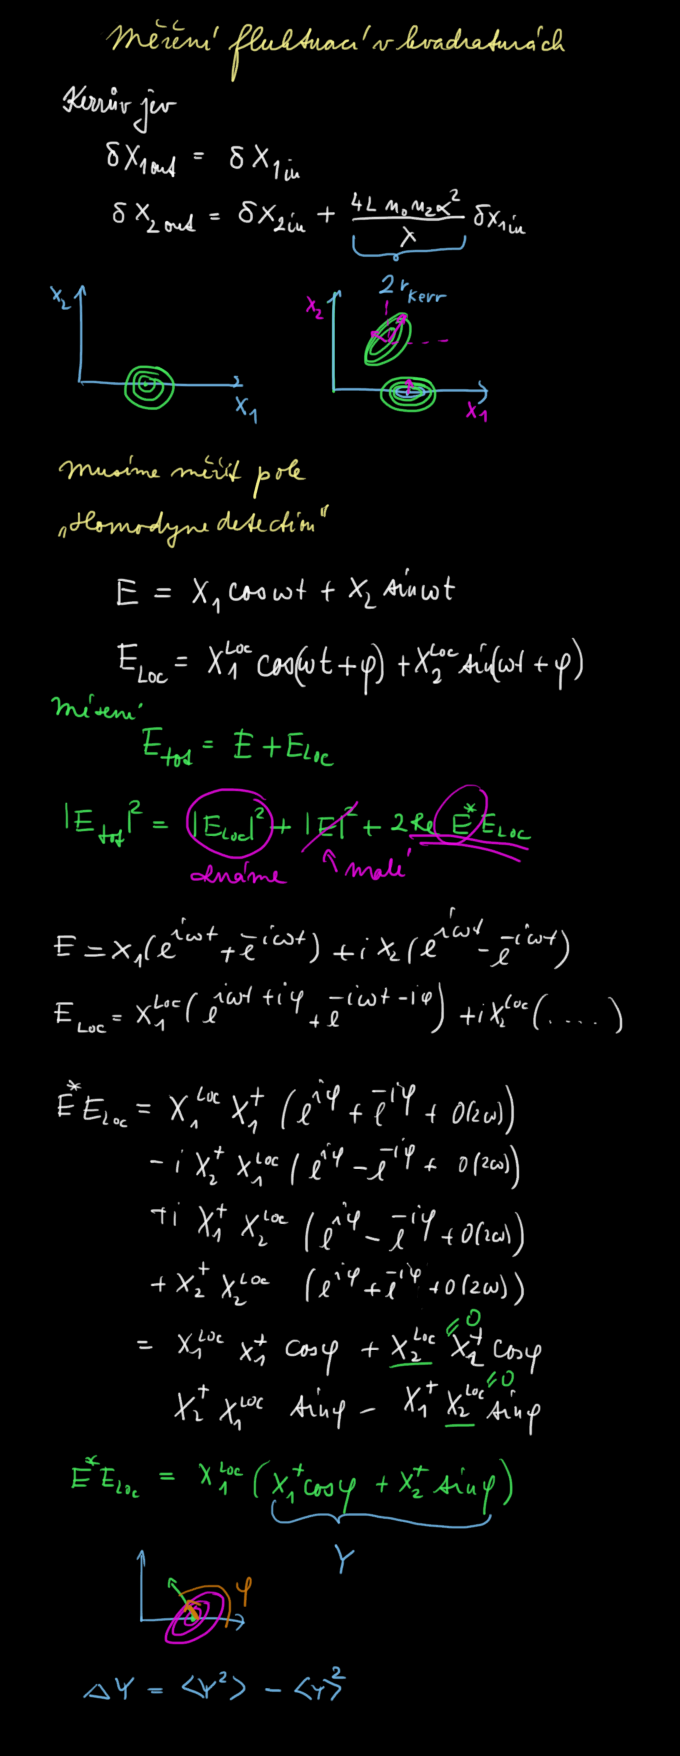 Měření fluktuací v kvadraturách
Kerrův jev
δX₁out = δX₁in
δX₂out = δX₂in + (4L n₀n₂α²)/λ δX₁in
2 r_Kerr
X₂
X₁
X₂
X₁
Musíme měřit pole
„Homodyne detection"
E = X₁ cos ωt + X₂ sin ωt
E_Loc = X₁^Loc cos(ωt + φ) + X₂^Loc sin(ωt + φ)
Měření
E_tot = E + E_Loc
|E_tot|² = |E_Loc|² + |E|² + 2Re E* E_Loc
známe
malé
E = X₁(e^iωt + e^-iωt) + i X₂(e^iωt - e^-iωt)
E_Loc = X₁^Loc(e^iωt+iφ + e^-iωt-iφ) + i X₂^Loc(.....)
E* E_Loc = X₁^Loc X₁⁺ (e^iφ + e^-iφ + O(2ω))
- i X₂⁺ X₁^Loc (e^iφ - e^-iφ + O(2ω))
+ i X₁⁺ X₂^Loc (e^iφ - e^-iφ + O(2ω))
+ X₂⁺ X₂^Loc (e^iφ + e^-iφ + O(2ω))
= X₁^Loc X₁⁺ cos φ + X₂^Loc X₂⁺ cos φ
X₂⁺ X₁^Loc sin φ - X₁⁺ X₂^Loc sin φ
E* E_Loc = X₁^Loc (X₁⁺ cos φ + X₂⁺ sin φ)
Y
φ
ΔY = ⟨Y²⟩ - ⟨Y⟩²